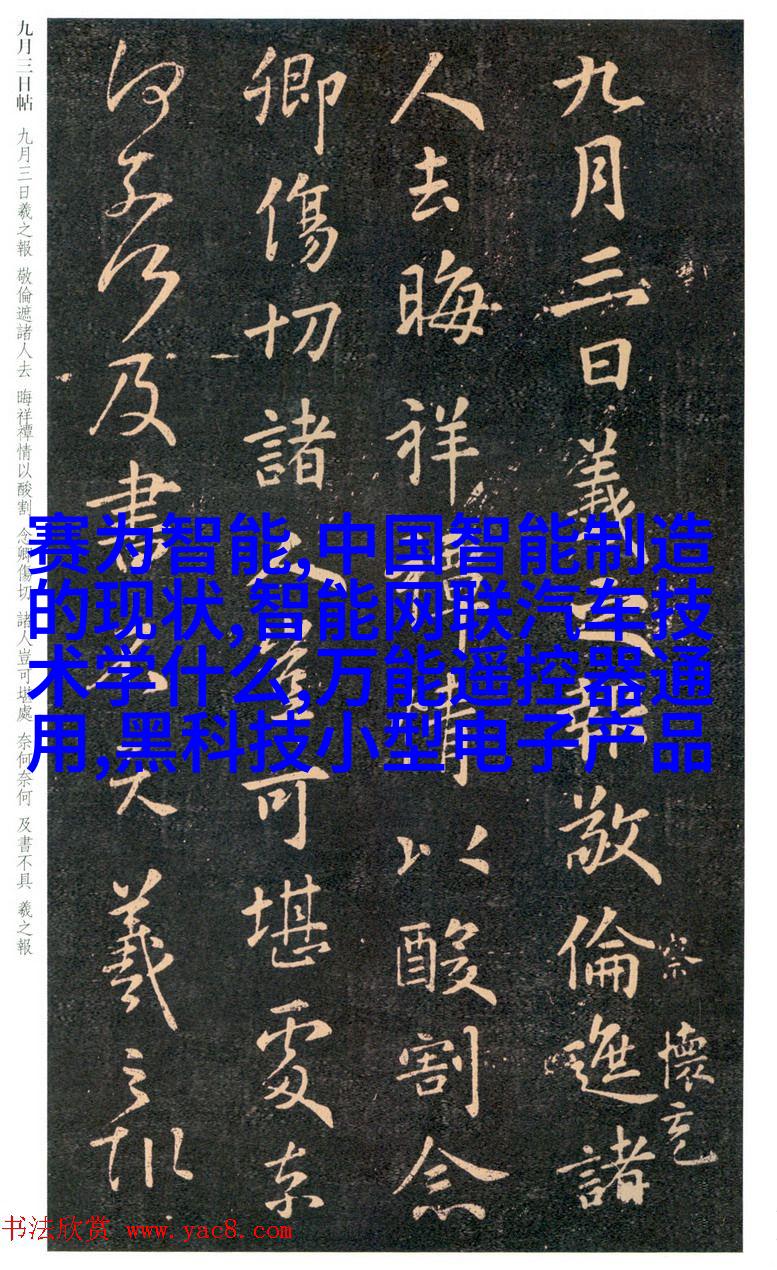 九月三日羲之報敬倫遮諸
察 懷充
人去晦祥禫情以酸割念
卿傷切諸人豈可堪處奈
何奈何及書不具羲之報
九月三日帖 九月三日羲之報 敬倫遮諸人去 晦祥禫情以酸割 念卿傷切 諸人豈可堪處 奈何奈何 及書不具 羲之報
赛为智能,中国智能制造
的现状,智能网联汽车技
术学什么,万能遥控器通
用,黑科技小型电子产品
书法欣赏 www.yac8.com